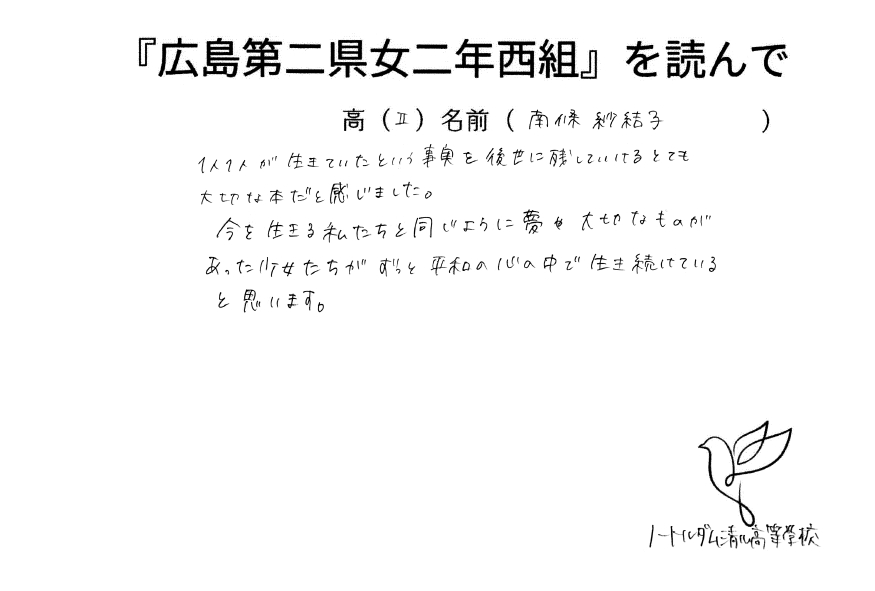 『広島第二県女二年西組』を読んで
高（Ⅱ）名前（南條 紗結子）
1人1人が生きていたという事実を後世に残していけるとても
大切な本だと感じました。
今を生きる私たちと同じように夢や大切なものが
あった少女たちがずっと平和の心の中で生き続けている
と思います。
ノートルダム清心高等学校